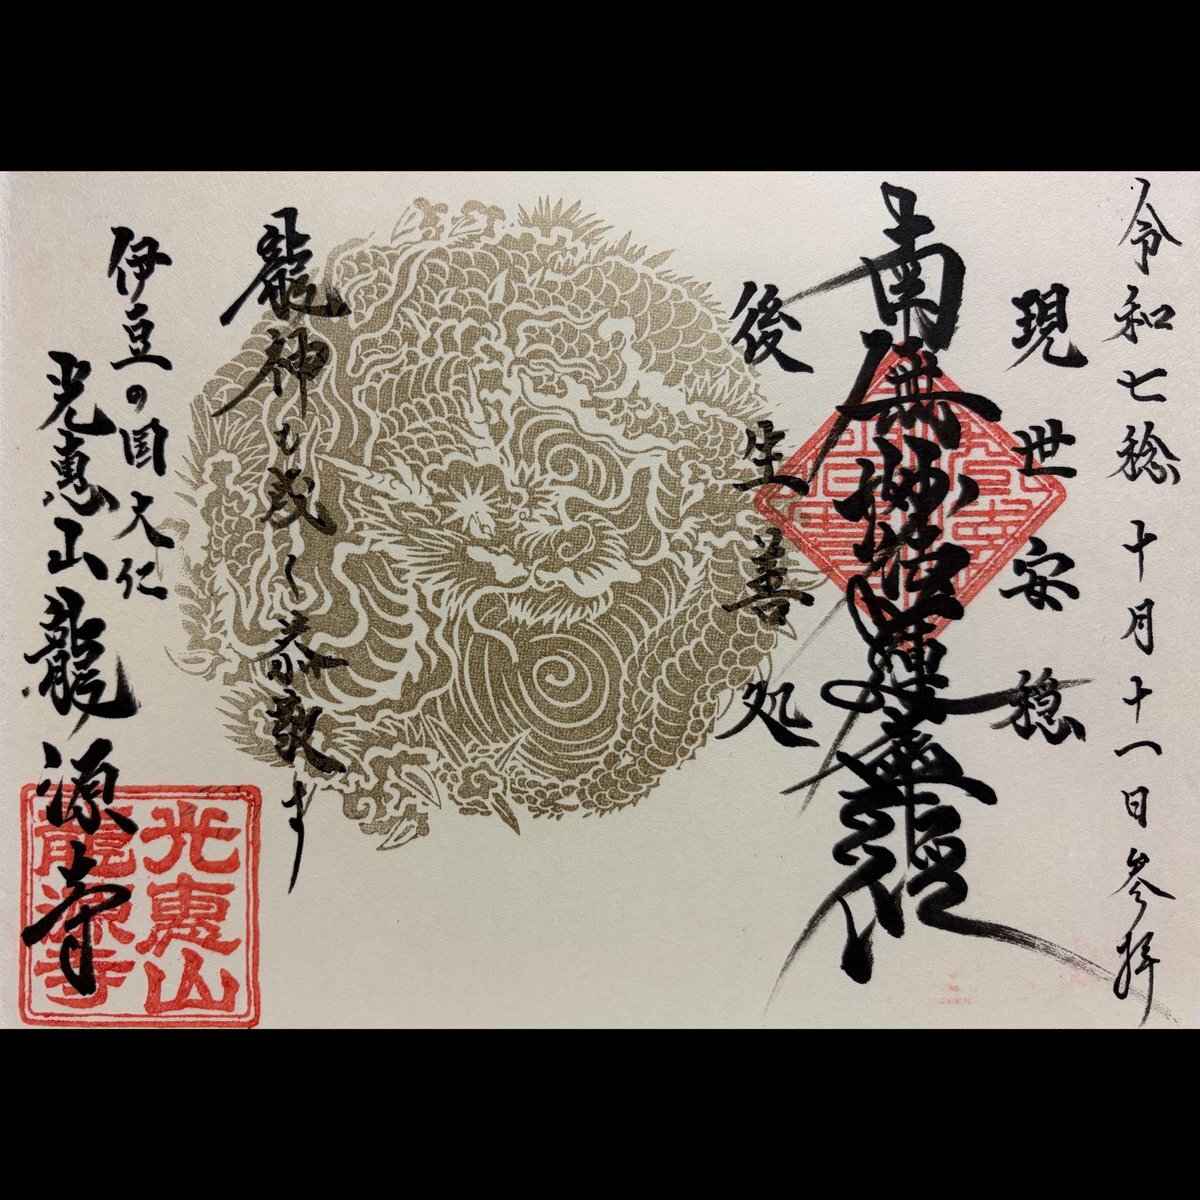 令和七稔十月十一日参拝
現世安穏
南無妙法蓮華經
後生善処
龍神も咸く恭敬す
伊豆の国大仁
光惠山龍源寺
光惠山
龍源寺